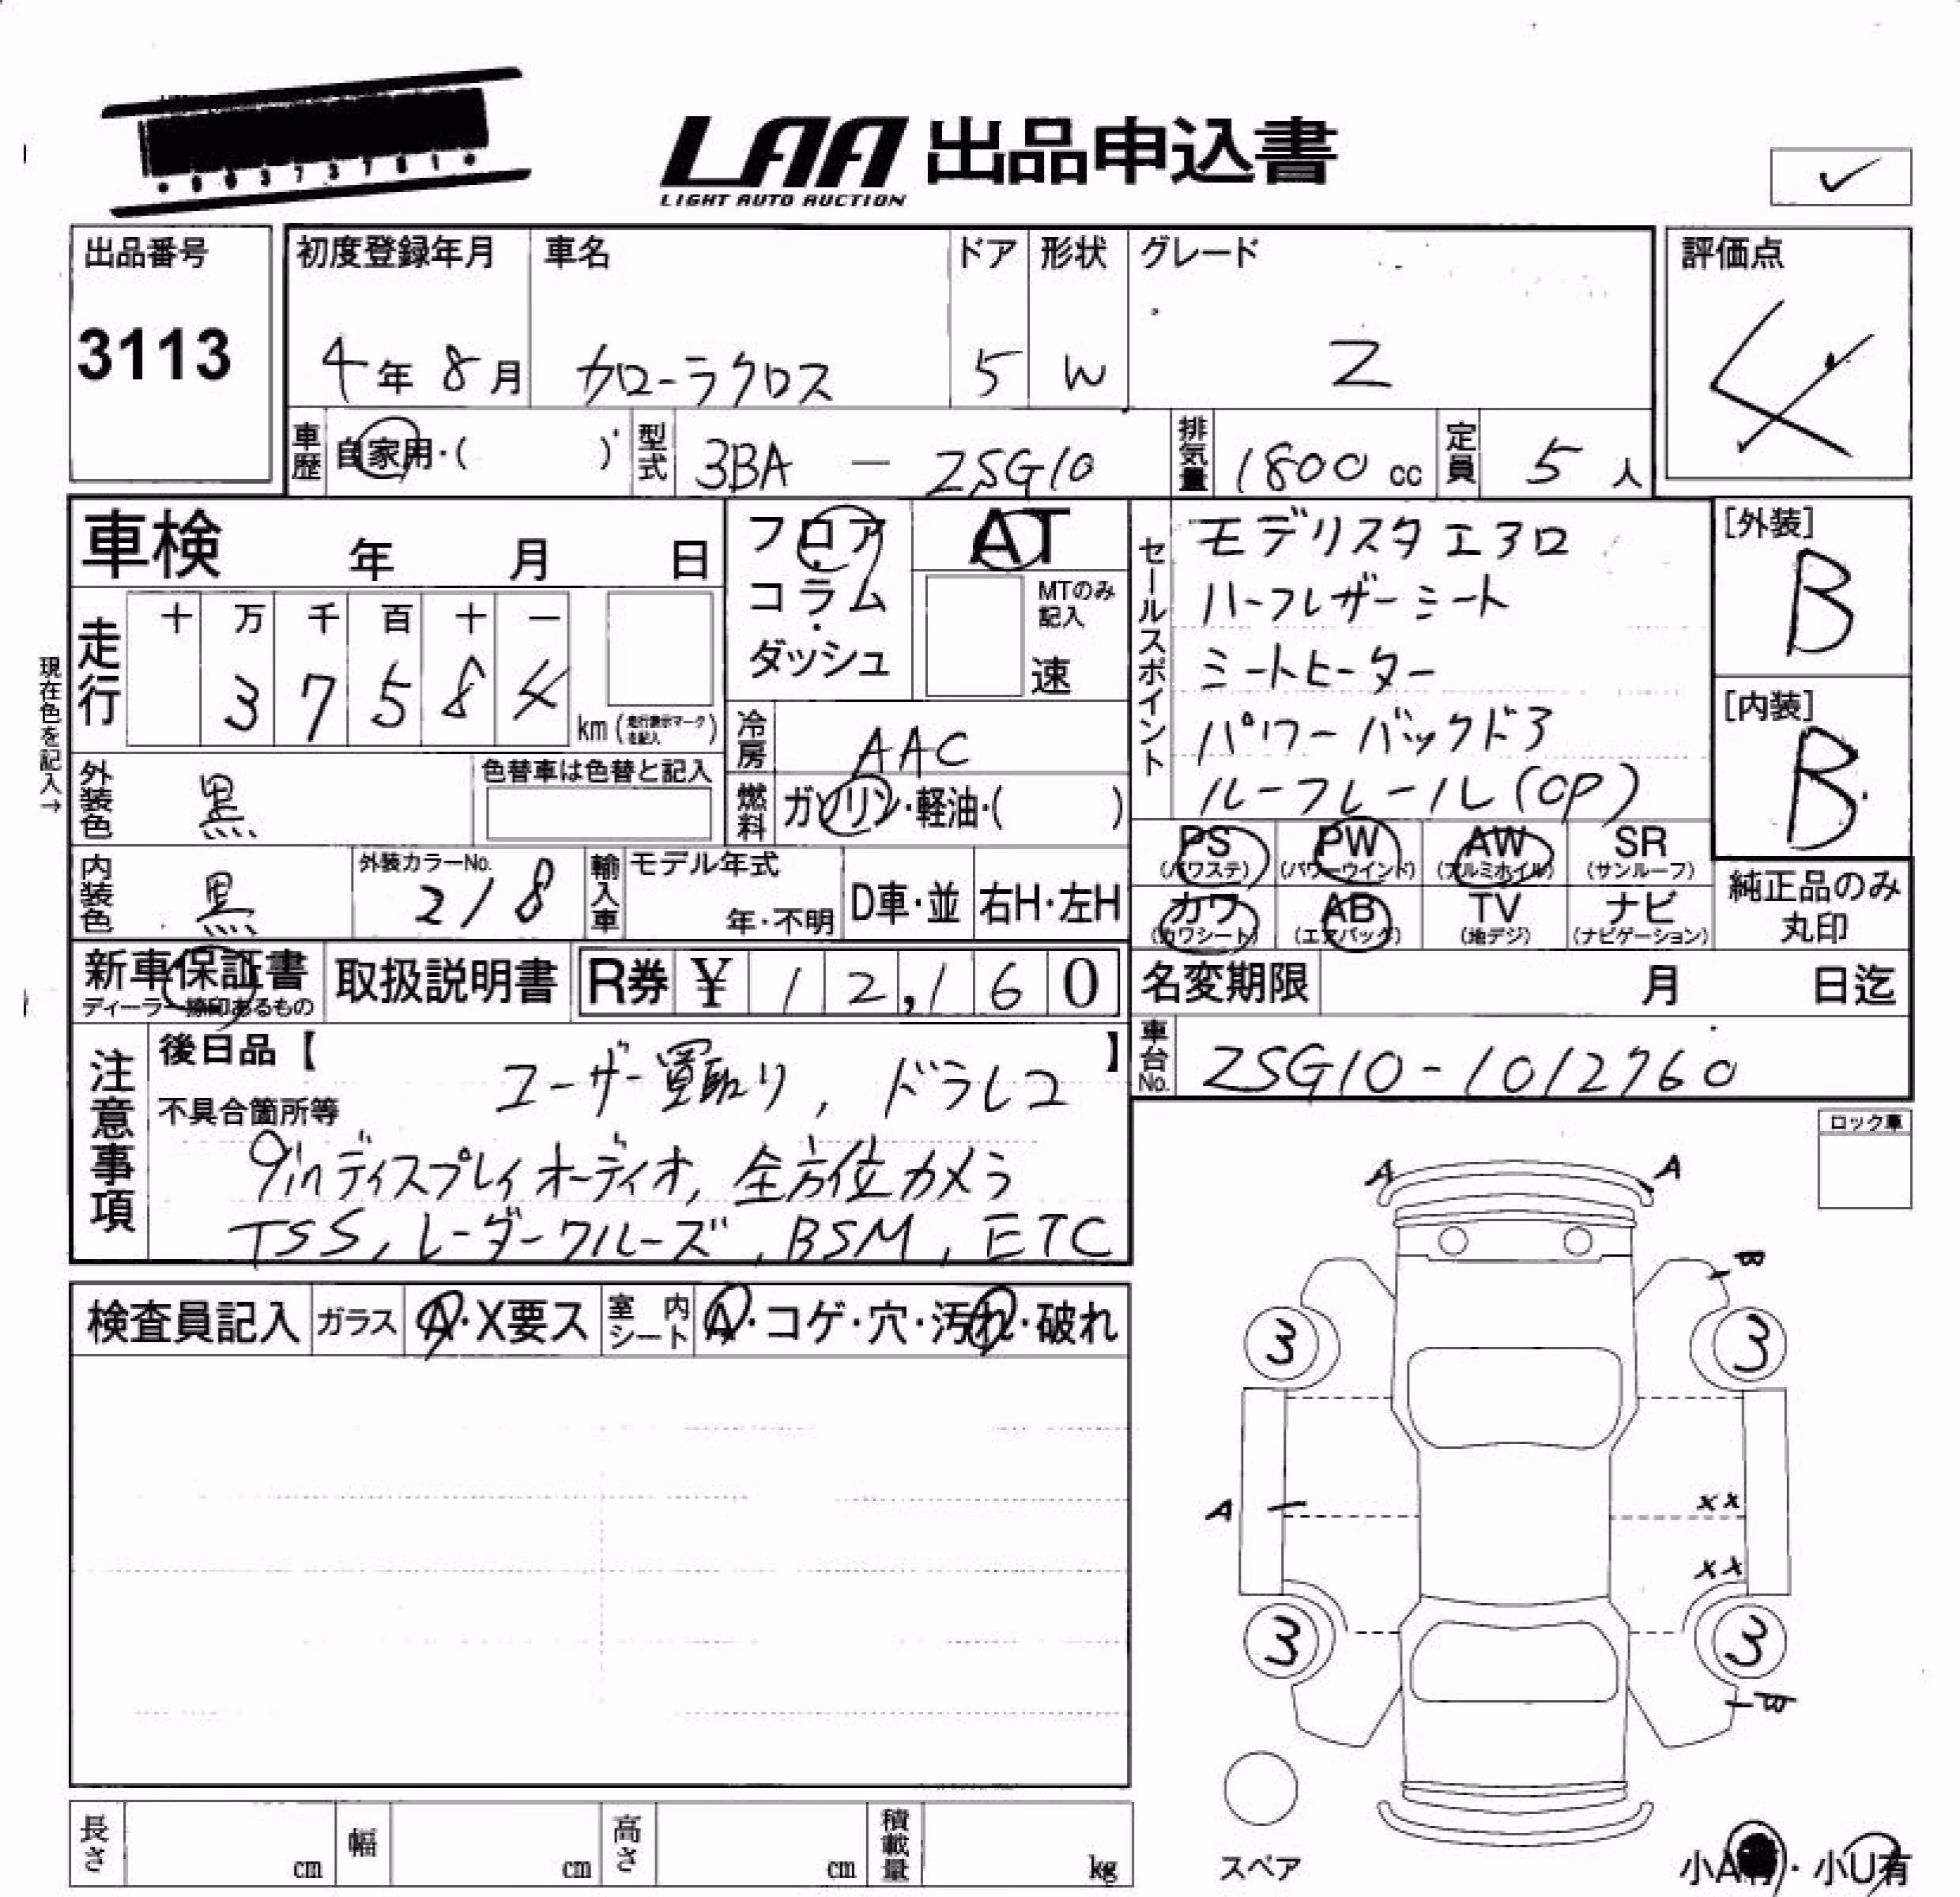 LAA 出品申込書
LIGHT AUTO AUCTION
出品番号
3113
初度登録年月 車名 ドア 形状 グレード 評価点
4年8月 カローラクロス 5 W Z 4
車歴 自家用・( ) 型式 3BA - ZSG10 排気量 1800cc 定員 5人
車検 年 月 日
フロア・コラム・ダッシュ
AT
MTのみ記入
速
走行 十 万 千 百 十 一
3 7 5 8 4
km (走行表示マークを記入)
現在色を記入→
冷房 AAC
外装色 黒 色替車は色替と記入
燃料 ガソリン・軽油・( )
内装色 黒 外装カラーNo. 218 輸入車 モデル年式 年・不明 D車・並 右H・左H
セールスポイント
モデリスタエアロ
ハーフレザーシート
シートヒーター
パワーバックドア
ルーフレール(OP)
[外装]
B
[内装]
B
PS (パワステ) PW (パワーウインド) AW (アルミホイル) SR (サンルーフ)
カワ (カワシート) AB (エアバッグ) TV (地デジ) ナビ (ナビゲーション)
純正品のみ丸印
新車保証書 取扱説明書 R券 ¥ 12,160
ディーラー捺印あるもの
名変期限 月 日迄
車台No. ZSG10-1012760
注意事項
後日品【 】
不具合箇所等
ユーザー買取り, ドラレコ
9inディスプレイオーディオ, 全方位カメラ
TSS, レーダークルーズ, BSM, ETC
ロック車
検査員記入 ガラス A・X要ス 室内シート A・コゲ・穴・汚れ・破れ
A A
B
3 3
A XX
XX
3 3
B
スペア
小A有・小U有
長さ cm 幅 cm 高さ cm 積載量 kg